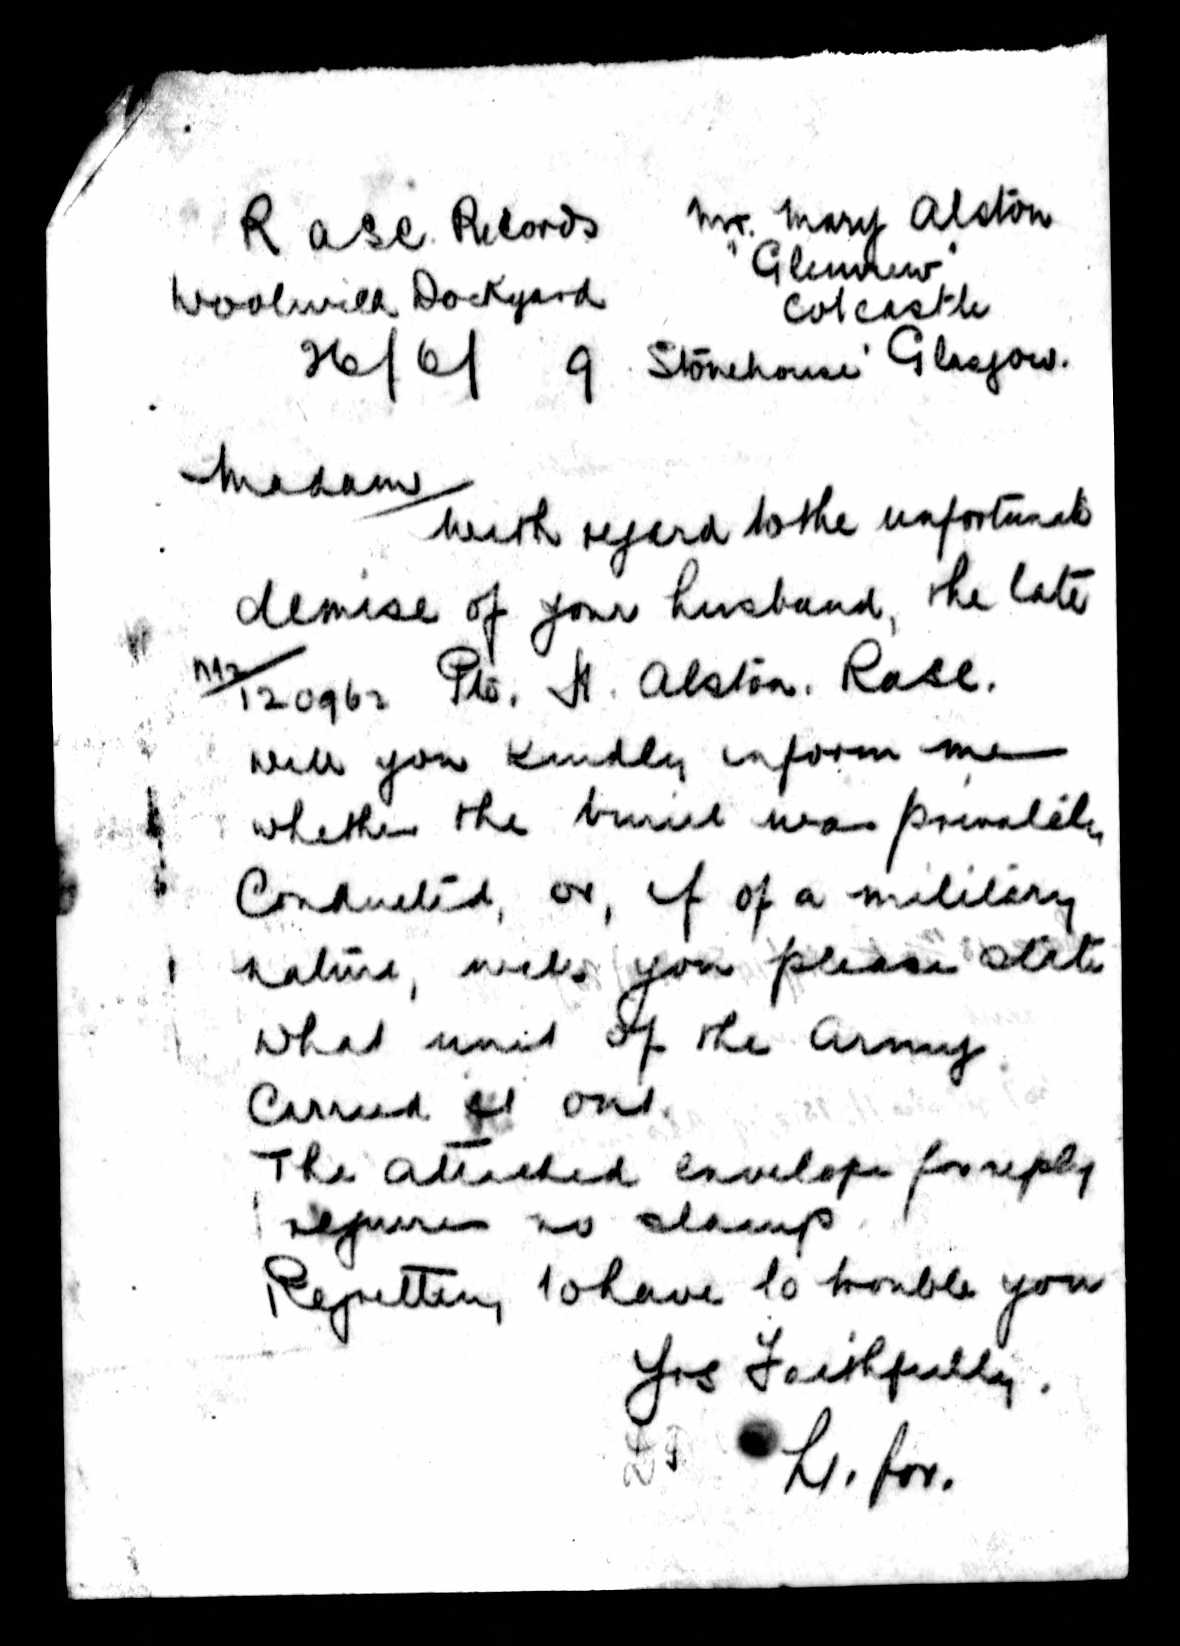 R ASC. Records
Woolwich Dockyard
26/6/ 9
Mrs. Mary Alston
"Glenview"
Cotcastle
Stonehouse Glasgow.
Madam
With regard to the unfortunate
demise of your husband, the late
M2/120962 Pte. H. Alston. RASC.
will you kindly inform me
whether the burial was privately
Conducted, or, if of a military
nature, will you please state
what unit of the Army
Carried it out.
The attached envelope for reply
requires no stamp.
Regretting to have to trouble you
Yrs Faithfully.
Lt. for.